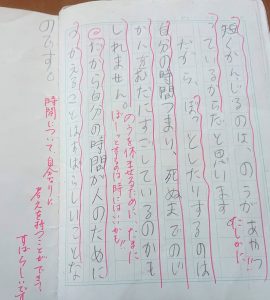 短くかんじるのは、のうがあやつ
っているからだと思います
たしかに!!
だから、ぼっとしたりするのは
自分の時間つまり、死ぬまでのじ
かんをむだにすごしているのかも
しれません。
のうを休ませるために、たまに
ぼーっとする時はいいかも。
だから自分の時間が人のために
つかえることはすばらしいことな
のです。
時間について、自分なりに
考えを持つことができて
すばらしいです